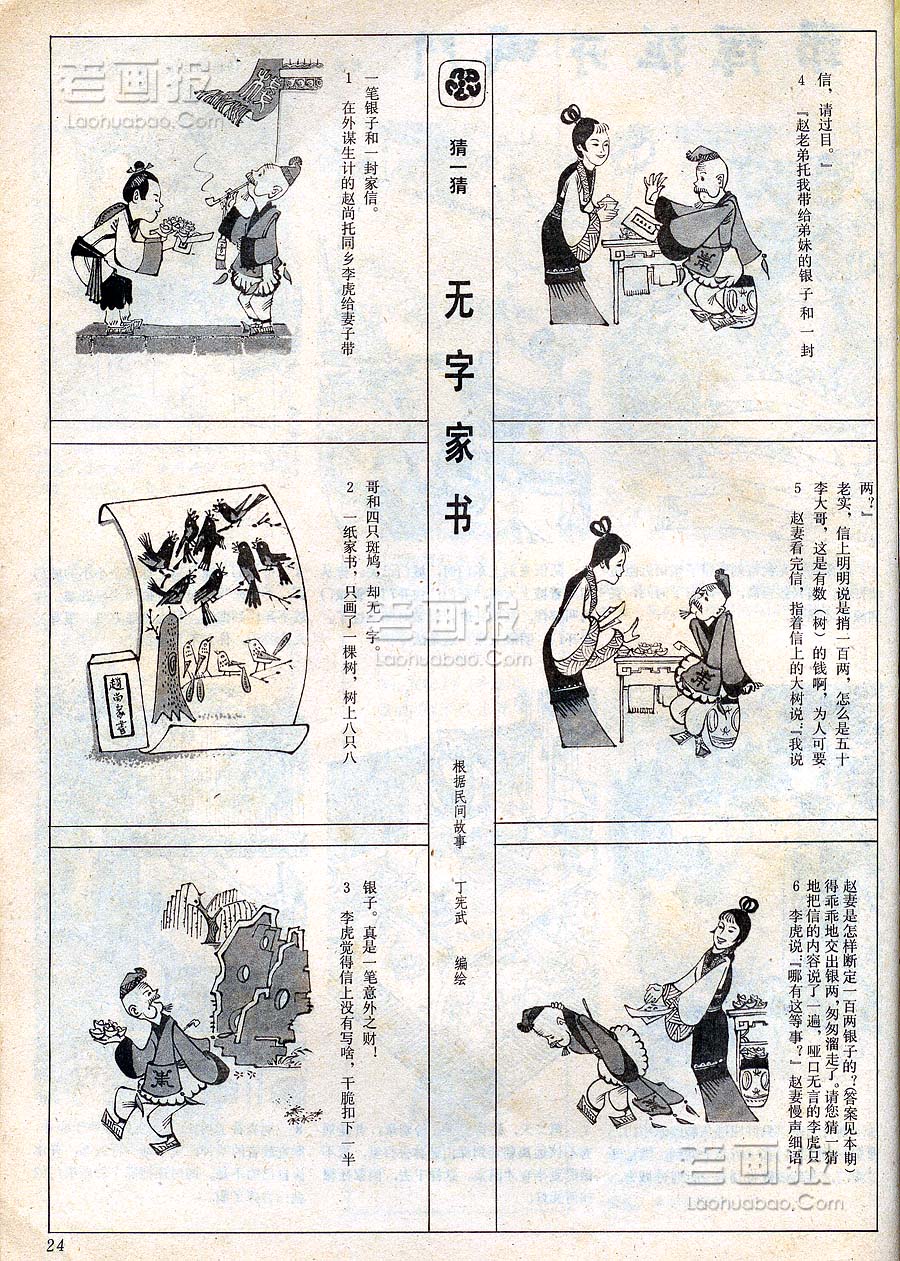 猜一猜
无字家书
根据民间故事 丁宪武 编绘
1 在外谋生计的赵尚托同乡李虎给妻子带
一笔银子和一封家信。
2 一纸家书，只画了一棵树，树上八只八
哥和四只斑鸠，却无一字。
趙尚家書
3 李虎觉得信上没有写啥，干脆扣下一半
银子。真是一笔意外之财！
4 『赵老弟托我带给弟妹的银子和一封
信，请过目。』
5 赵妻看完信，指着信上的大树说：『我说
李大哥，这是有数（树）的钱啊，为人可要
老实，信上明明说是捎一百两，怎么是五十
两？』
6 李虎说：『哪有这等事？』赵妻慢声细语
地把信的内容说了一遍，哑口无言的李虎只
得乖乖地交出银两，匆匆溜走了。请您猜一猜
赵妻是怎样断定一百两银子的？（答案见本期）
24
老画报
Laohuabao.Com
老画报
Laohuabao.Com
老画报
Laohuabao.Com